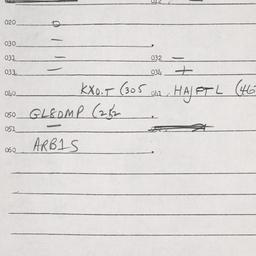 020 0
030 —
032 — 032 —
034 — 034 +
040 KXO.T (305 042 HAJFTL (46
050 GL8DMP (252
052 —
060 ARB1S